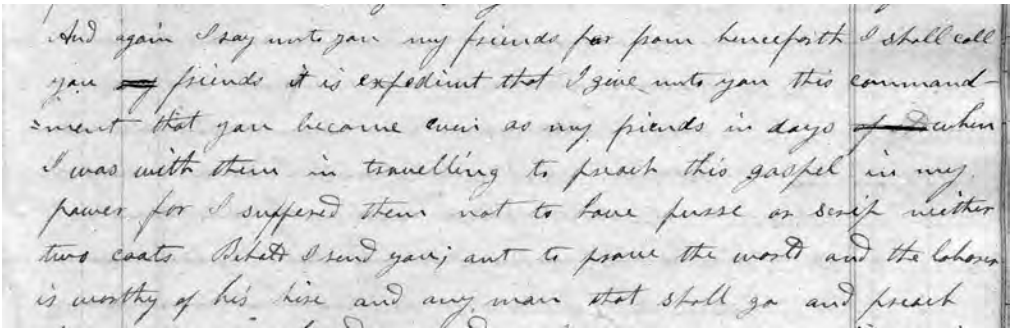 And again I say unto you my friends for from henceforth I shall call
you my friends it is expedient that I give unto you this command-
=ment that you become even as my friends in days when
I was with them in travelling to preach this gospel in my
power for I suffered them not to have purse or scrip neither
two coats Behold I send you; out to prove the world and the laborer
is worthy of his hire and any man that shall go and preach